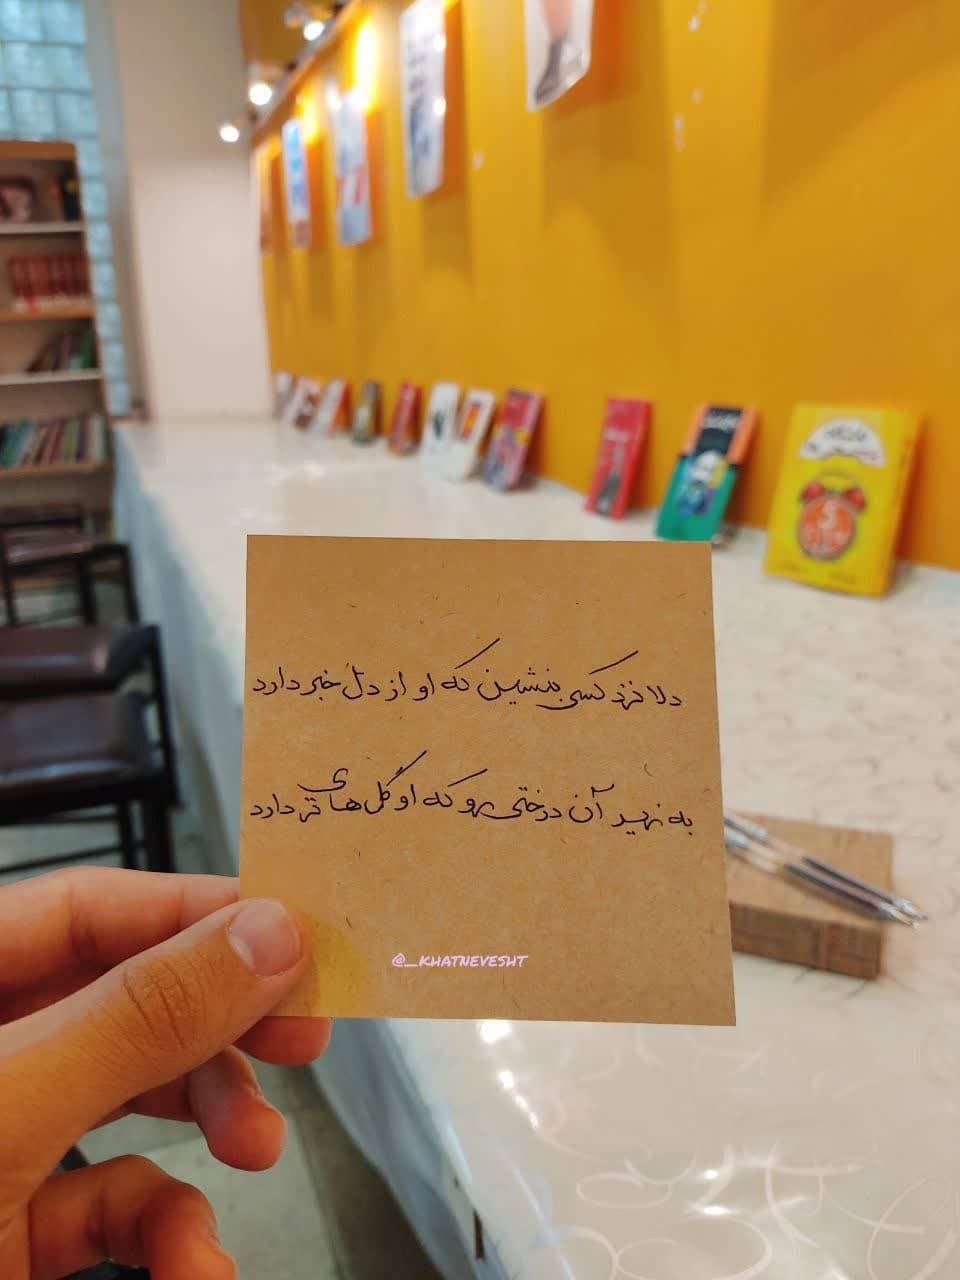 دلا نزد کسی بنشین که او از دل خبر دارد
به زیر آن درختی رو که او گل‌های تر دارد
@_KHATNEVESHT
5